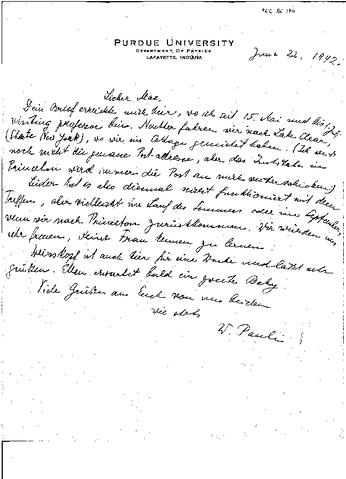 PURDUE UNIVERSITY
DEPARTMENT OF PHYSICS
LAFAYETTE, INDIANA
June 22, 1942.
Lieber Max,
Dein Brief erreichte mich hier, wo ich seit 15. Mai und bis
visiting professor bin. Nachher fahren wir nach Lake Clear,
(State New York), wo wir ein Cottage gemietet haben. (Ich weiss
noch nicht die genaue Post adresse, aber das Institute in
Princeton wird immer die Post an mich weiterschicken)
Leider hat es also diesmal nicht funktioniert mit dem
Treffen, aber vielleicht im Lauf des Sommers oder im September,
wenn wir nach Princeton zurückkommen. Wir würden uns
sehr freuen, Deine Frau kennen zu lernen
Weisskopf ist auch hier für eine Woche und lässt sehr
grüssen. Ellen erwartet bald ein zweites Baby
Viele Grüsse an Euch von uns beiden
wie stets
W. Pauli